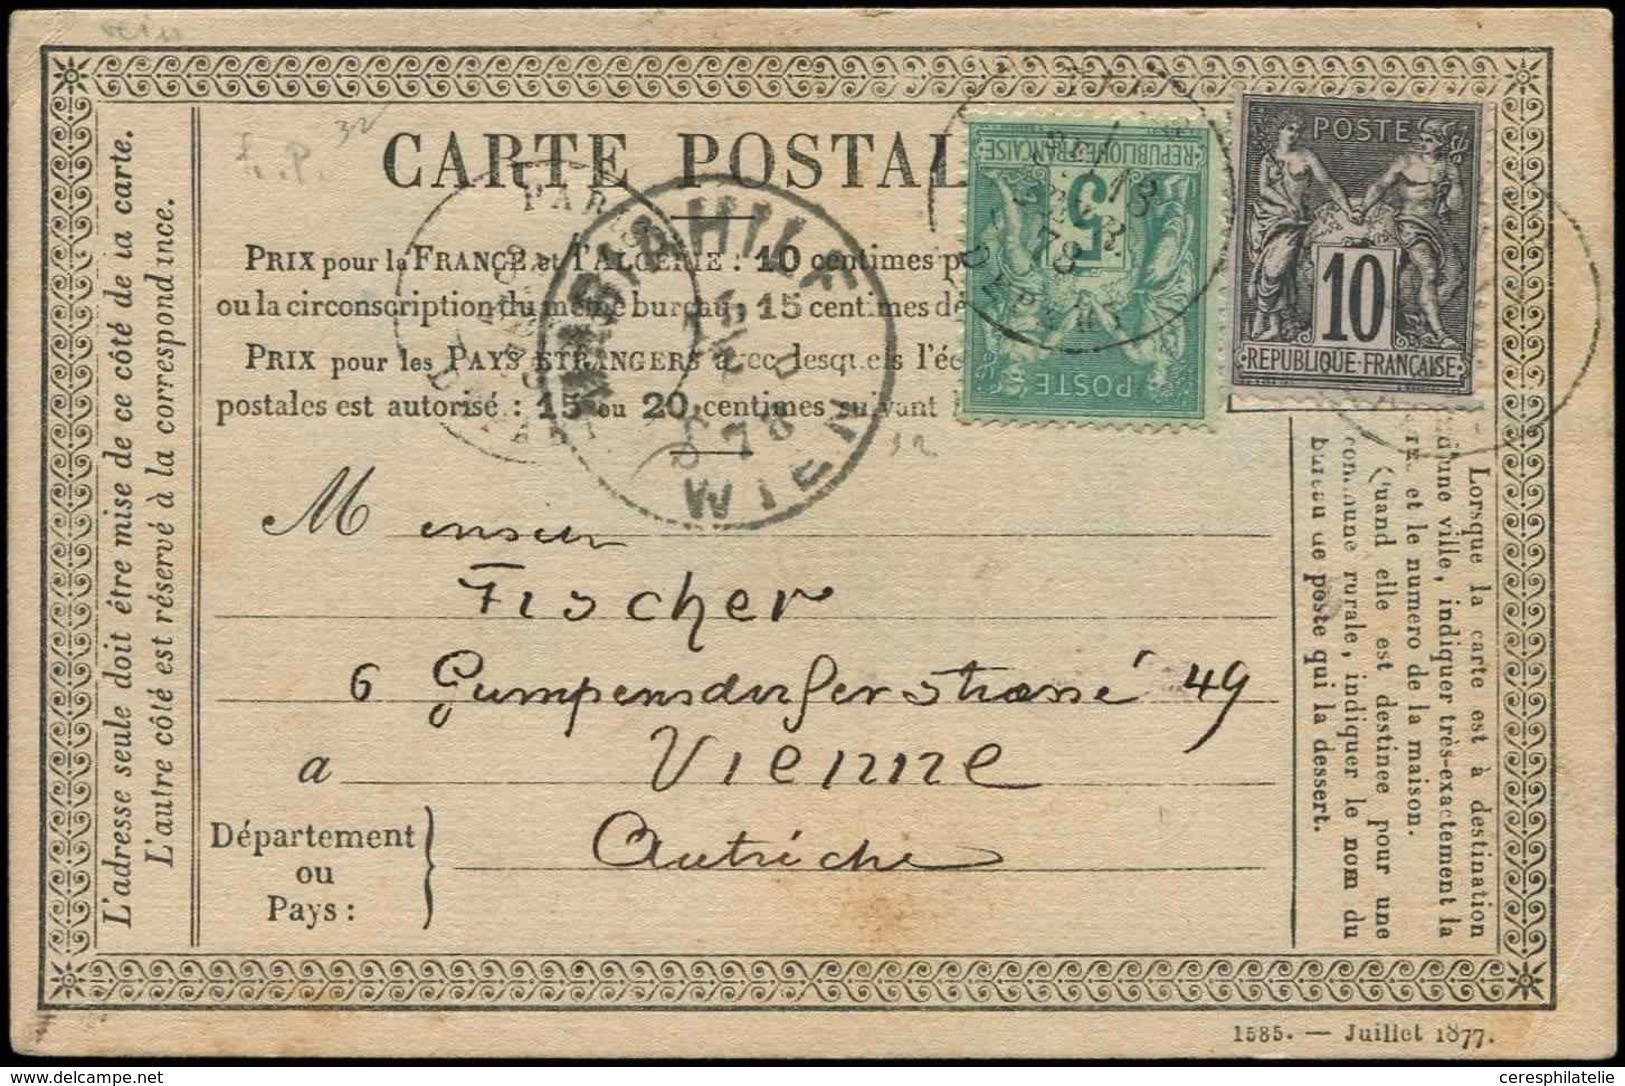 CARTE POSTAL
PRIX pour la FRANCE et l'ALGÉRIE : 10 centimes p
ou la circonscription du même bureau, 15 centimes de
PRIX pour les PAYS ÉTRANGERS avec lesquels l'éc
postales est autorisé : 15 ou 20 centimes suivant l
M onsieur
Fischer
6 Gumpensdorferstrasse 49
a Vienne
Département
ou
Pays :
Autriche
L'adresse seule doit être mise de ce côté de la carte.
L'autre côté est réservé à la correspondance.
Lorsque la carte est à destination
d'une ville, indiquer très-exactement la
rue et le numero de la maison.
Quand elle est destinee pour une
commune rurale, indiquer le nom du
bureau de poste qui la dessert.
1585. — Juillet 1877.
REPUBLIQUE FRANÇAISE
5
POSTES
POSTES
10
REPUBLIQUE-FRANÇAISE
PARIS
DÉPART
MARIAHILF
WIEN
78
13
78
DEPART
32
f. p.
32
ceresphilatelie